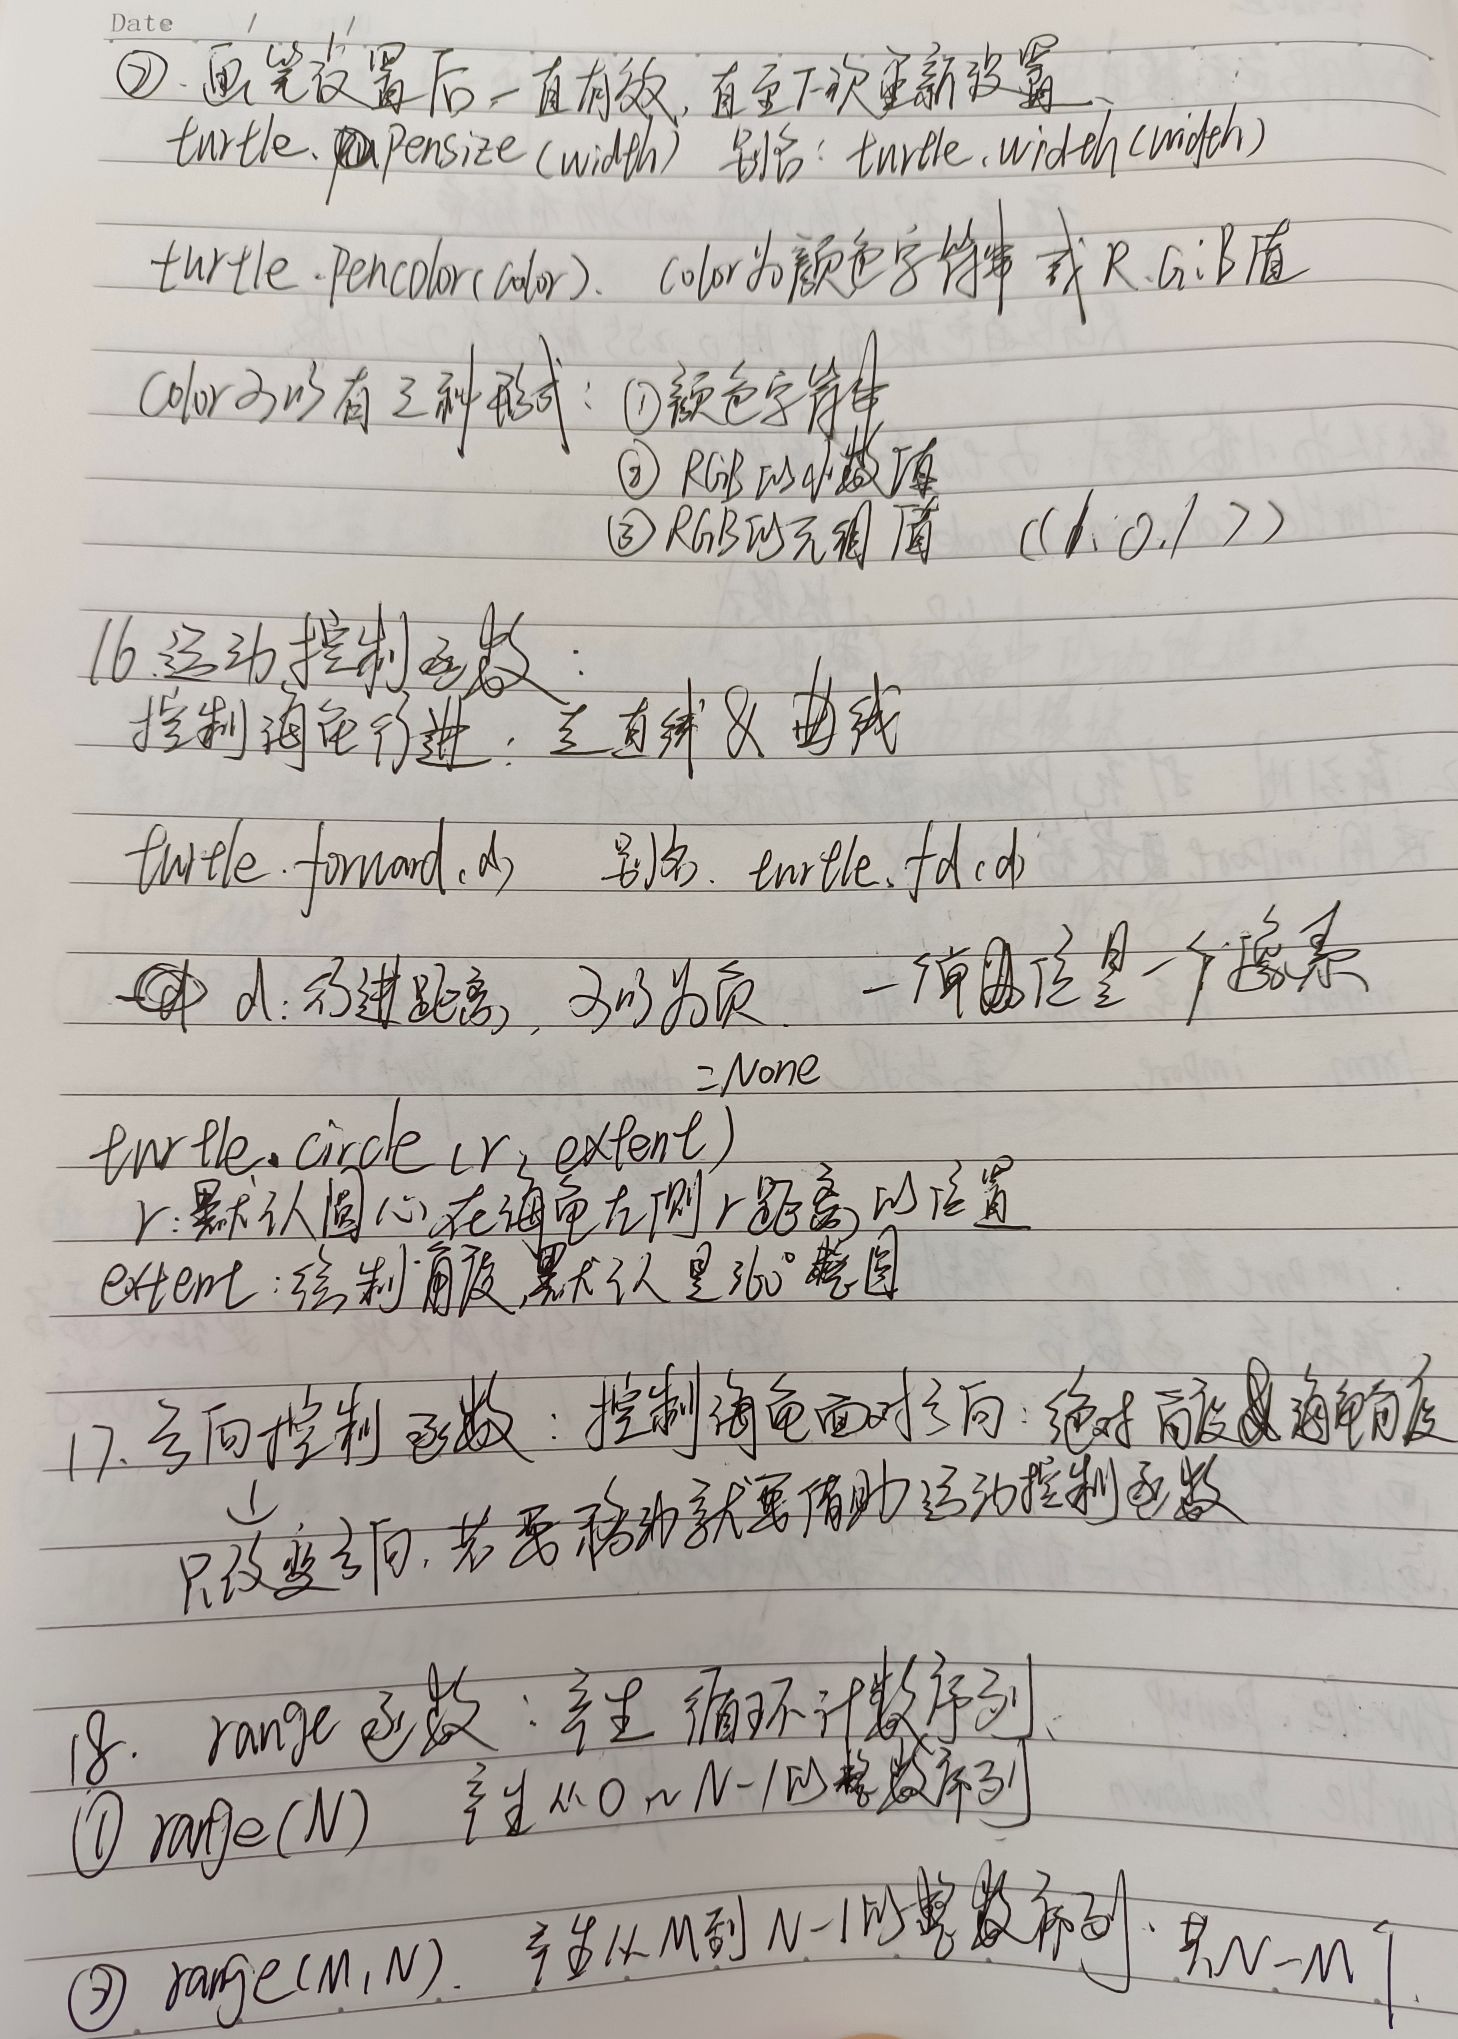 Date / /
②.画笔设置后一直有效,直至下次重新设置.
turtle.pensize(width) 别名: turtle.width(width)
turtle.pencolor(color). color为颜色字符串或R.G.B值
color可以有三种形式: ①颜色字符串
② RGB的小数值
③ RGB的元组值 ((1.0.1))
16.运动控制函数:
控制海龟行进: 走直线&曲线
turtle.forward(d) 别名. turtle.fd(d)
d: 行进距离, 可以为负. 一个单位是一个像素
=None
turtle.circle(r, extent)
r:默认圆心在海龟左侧r距离的位置
extent:绘制角度,默认是360°整圆
17.方向控制函数: 控制海龟面对方向: 绝对角度&海龟角度
↓
只改变方向.若要移动就要借助运动控制函数
18. range函数: 产生循环计数序列.
① range(N) 产生从0~N-1的整数序列
② range(M,N). 产生从M到N-1的整数序列.共N-M个.